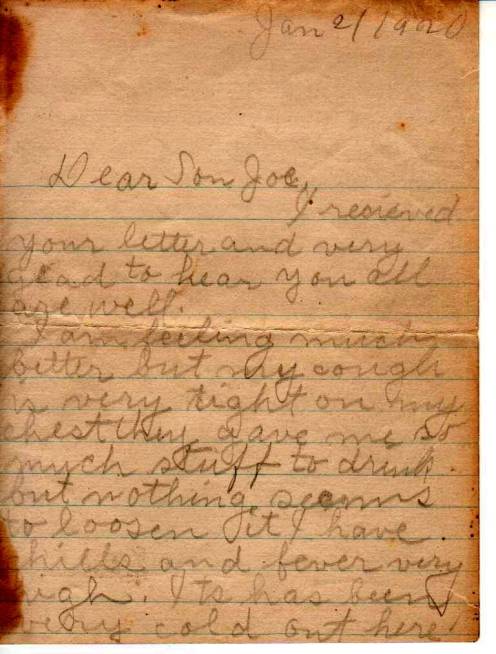 Jan 21 1920
Dear Son Joe,
I recieved
your letter and very
glad to hear you all
are well.
I am feeling much
bitter but my cough
is very tight on my
chest they gave me so
much stuff to drink.
but nothing seems
to loosen it I have
chills and fever very
high. Its has been
very cold out here